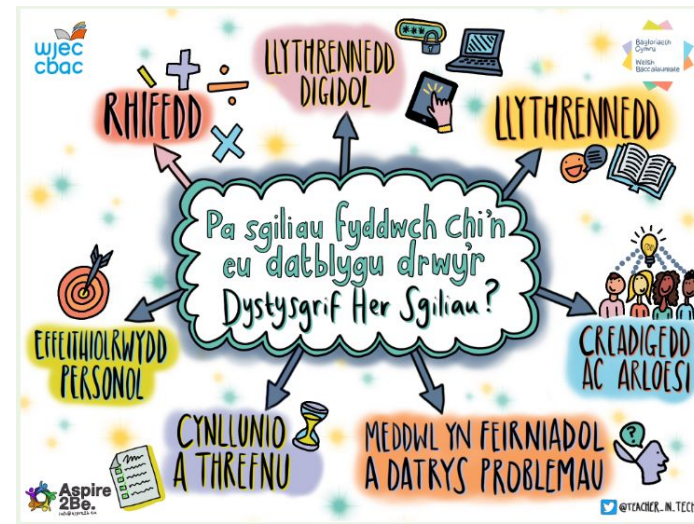 wjec
cbac
Bagloriaeth
Cymru
Welsh
Baccalaureate
RHIFEDD
LLYTHRENNEDD
DIGIDOL
LLYTHRENNEDD
Pa sgiliau fyddwch chi'n
eu datblygu drwy'r
Dystysgrif Her Sgiliau?
EFFEITHIOLRWYDD
PERSONOL
CREADIGEDD
AC ARLOESI
CYNLLUNIO
A THREFNU
MEDDWL YN FEIRNIADOL
A DATRYS PROBLEMAU
Aspire
2Be.
@TEACHER_IN_TECH